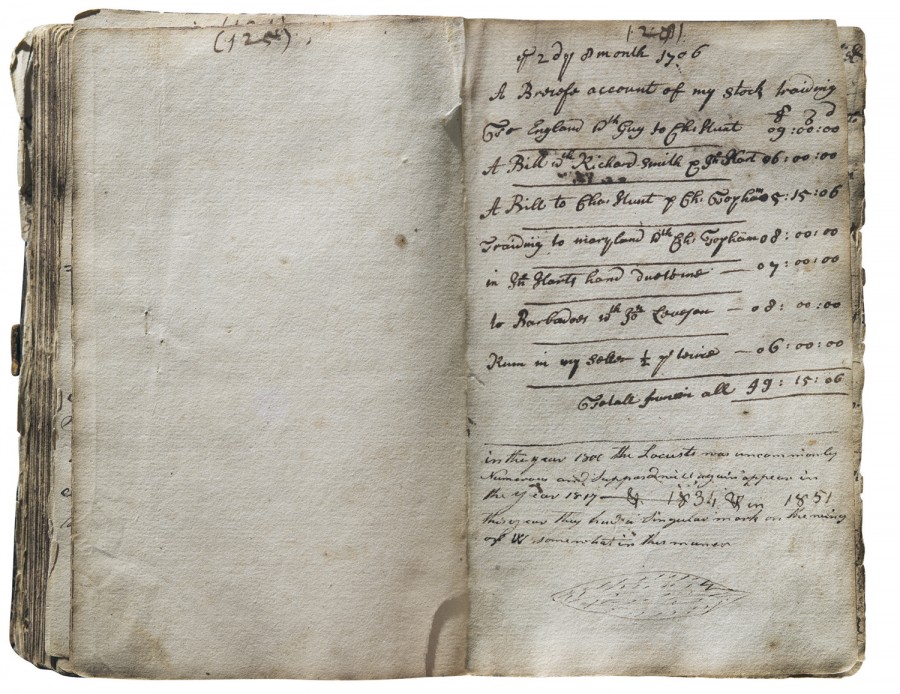 (125)
ye 2d of 8 month 1706
A Breefe account of my stock traiding
£ s d
To England wth Guy to Chs Hunt 09:00:00
A Bill wth Richard Smith p Jh Hart 06:00:00
A Bill to Cha: Hunt p Ch: Topham 5:15:06
Traiding to maryland wth Ch: Topham 08:00:00
in Jh Harts hand — 07:00:00
to Barbadoes wth Jon — 08:00:00
Rum in my Seller ½ pd — 06:00:00
Totall all 49:15:06
in the year the Locusts was uncommonly
Numerous and Supposd will again appear in
the Year 1817 — & 1834 & in 1851
this year they had a Singular mark on the wing
of W somewhat in this maner